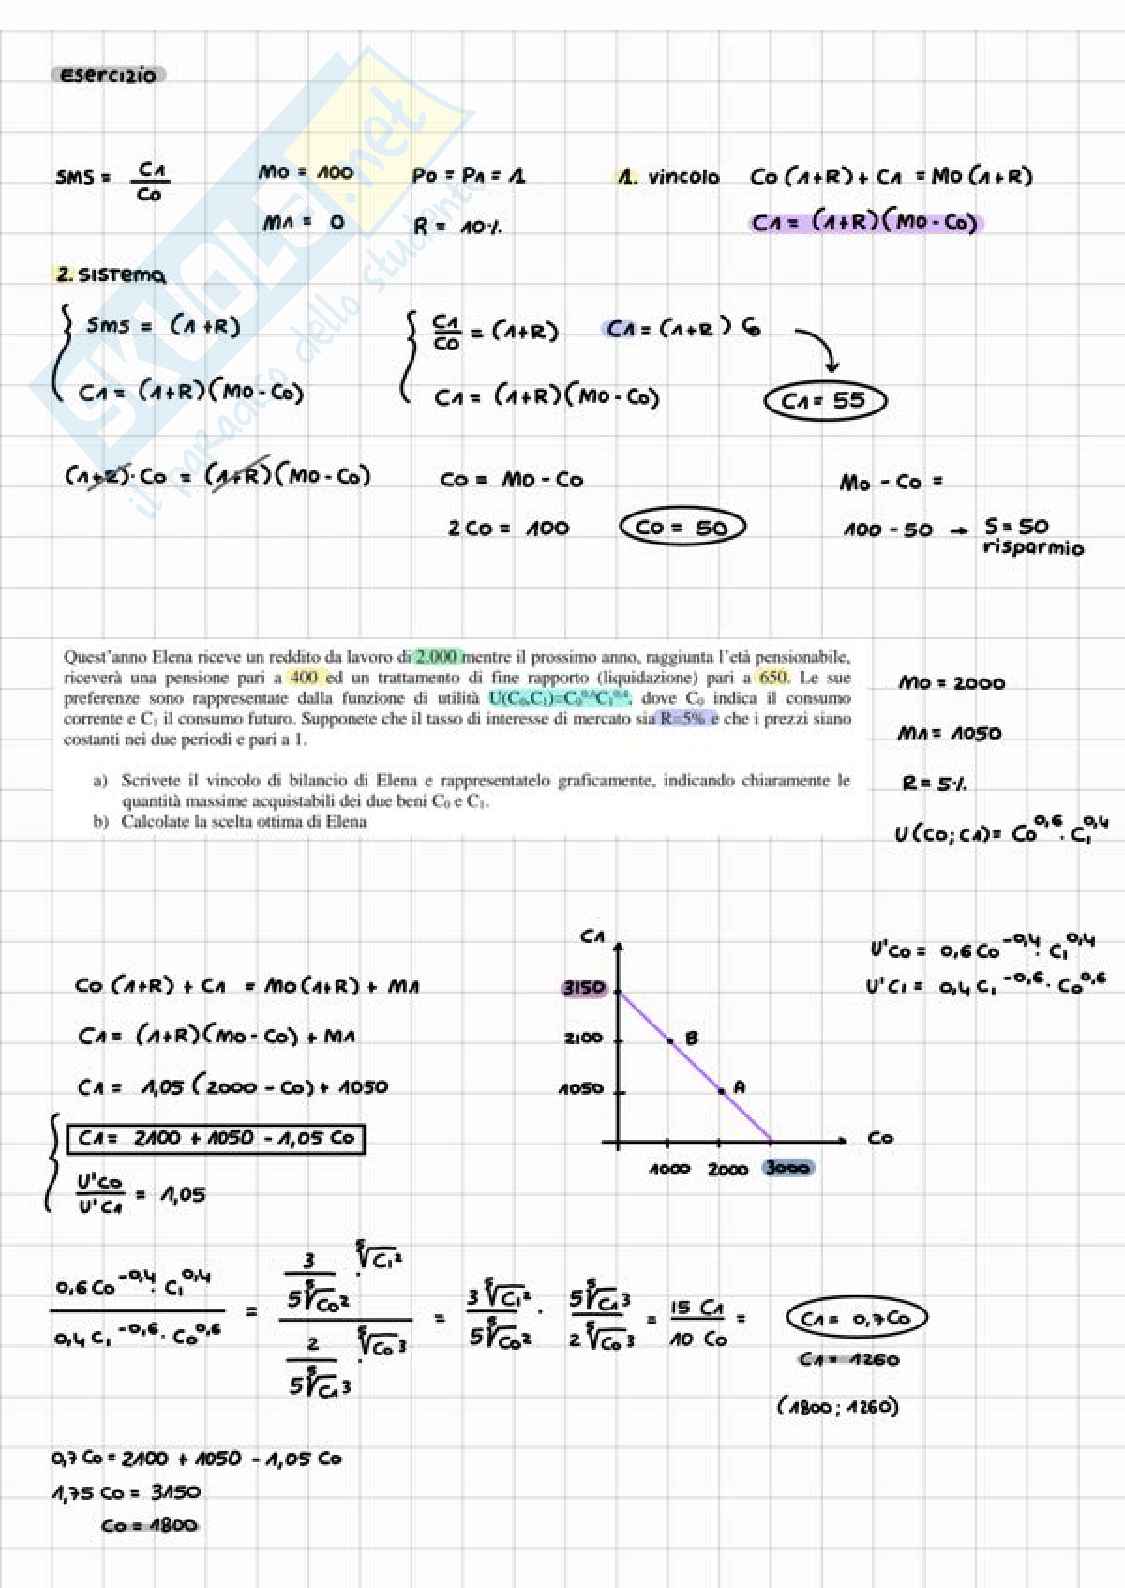 esercizio
SMS = C1/C0
M0 = 100
P0 = P1 = 1
1. vincolo C0 (1+R) + C1 = M0 (1+R)
M1 = 0
R = 10%
C1 = (1+R)(M0 - C0)
2. sistema
SMS = (1+R)
C1/C0 = (1+R)
C1 = (1+R) C0
C1 = (1+R)(M0 - C0)
C1 = (1+R)(M0 - C0)
C1 = 55
(1+R)·C0 = (1+R)(M0 - C0)
C0 = M0 - C0
M0 - C0 =
2C0 = 100
C0 = 50
100 - 50 → S = 50
risparmio
SKUOLA.net
il paradiso dello studente
Quest'anno Elena riceve un reddito da lavoro di 2.000 mentre il prossimo anno, raggiunta l'età pensionabile,
riceverà una pensione pari a 400 ed un trattamento di fine rapporto (liquidazione) pari a 650. Le sue
preferenze sono rappresentate dalla funzione di utilità U(C0,C1)=C0^0,6C1^0,4, dove C0 indica il consumo
corrente e C1 il consumo futuro. Supponete che il tasso di interesse di mercato sia R=5% e che i prezzi siano
costanti nei due periodi e pari a 1.
a) Scrivete il vincolo di bilancio di Elena e rappresentatelo graficamente, indicando chiaramente le
quantità massime acquistabili dei due beni C0 e C1.
b) Calcolate la scelta ottima di Elena
M0 = 2000
M1 = 1050
R = 5%
U(C0; C1) = C0^0,6 · C1^0,4
C0 (1+R) + C1 = M0 (1+R) + M1
C1 = (1+R)(M0 - C0) + M1
C1 = 1,05 (2000 - C0) + 1050
C1 = 2100 + 1050 - 1,05 C0
U'C0/U'C1 = 1,05
C1
3150
2100
B
1050
A
C0
1000 2000 3000
U'C0 = 0,6 C0^-0,4 · C1^0,4
U'C1 = 0,4 C1^-0,6 · C0^0,6
(0,6 C0^-0,4 · C1^0,4)/(0,4 C1^-0,6 · C0^0,6) = (3/(5 ⁵√C0²) · ⁵√C1²)/(2/(5 ⁵√C1³) · ⁵√C0³) = (3 ⁵√C1²)/(5 ⁵√C0²) · (5 ⁵√C1³)/(2 ⁵√C0³) = 15 C1/10 C0 =
C1 = 0,7 C0
C1 = 1260
(1800; 1260)
0,7 C0 = 2100 + 1050 - 1,05 C0
1,75 C0 = 3150
C0 = 1800